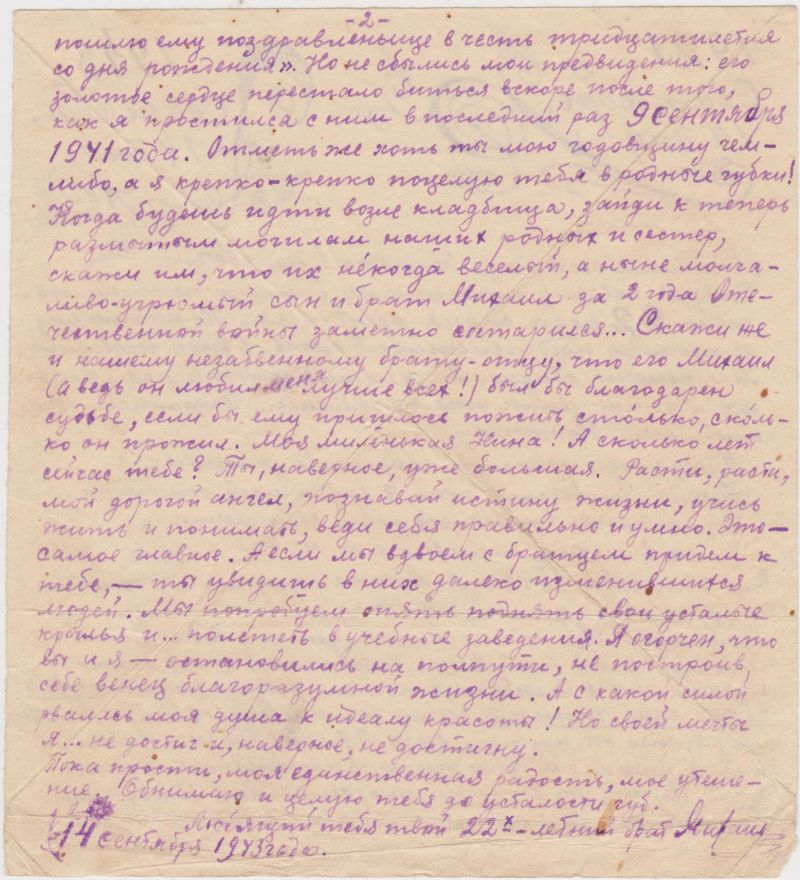 -2-
пошлю ему поздравленьице в честь тридцатилетия
со дня рождения». Но не сбылись мои предвидения: его
золотое сердце перестало биться вскоре после того,
как я простился с ним в последний раз 9 сентября
1941 года. Отметь же хоть ты мою годовщину чем-
либо, а я крепко-крепко поцелую тебя в родные губки!
Когда будешь идти возле кладбища, зайди к теперь
размытым могилам наших родных и сестер,
скажи им, что их не́когда веселый, а ныне молча-
ливо-угрюмый сын и брат Михаил за 2 года Оте-
чественной войны заметно состарился... Скажи же
и нашему незабвенному брату-отцу, что его Михаил
(а ведь он любил меня лучше всех!) был бы благодарен
судьбе, если бы ему пришлось пожить сто́лько, ско́ль-
ко он прожил. Моя миленькая Нина! А сколько лет
сейчас тебе? Ты, наверное, уже большая. Расти, расти,
мой дорогой ангел, познавай истину жизни, учись
жить и понимать, веди себя правильно и умно. Это-
самое главное. А если мы вдвоем с братцем придем к
тебе, — ты увидишь в них далеко изменившихся
людей. Мы попробуем опять поднять свои усталые
крылья и... полететь в учебные заведения. Я огорчен, что
вы и я — остановились на полпути, не построив
себе венец благоразумной жизни. А с какой силой
рвалась моя душа к идеалу красоты! Но своей мечты
я... не достиг и, наверное, не достигну.
Пока прости, моя единственная радость, мое утеше-
ние. Обнимаю и целую тебя до усталости губ.
Любящий тебя твой 22х-летний брат Михаил
14 сентября 1943 года.